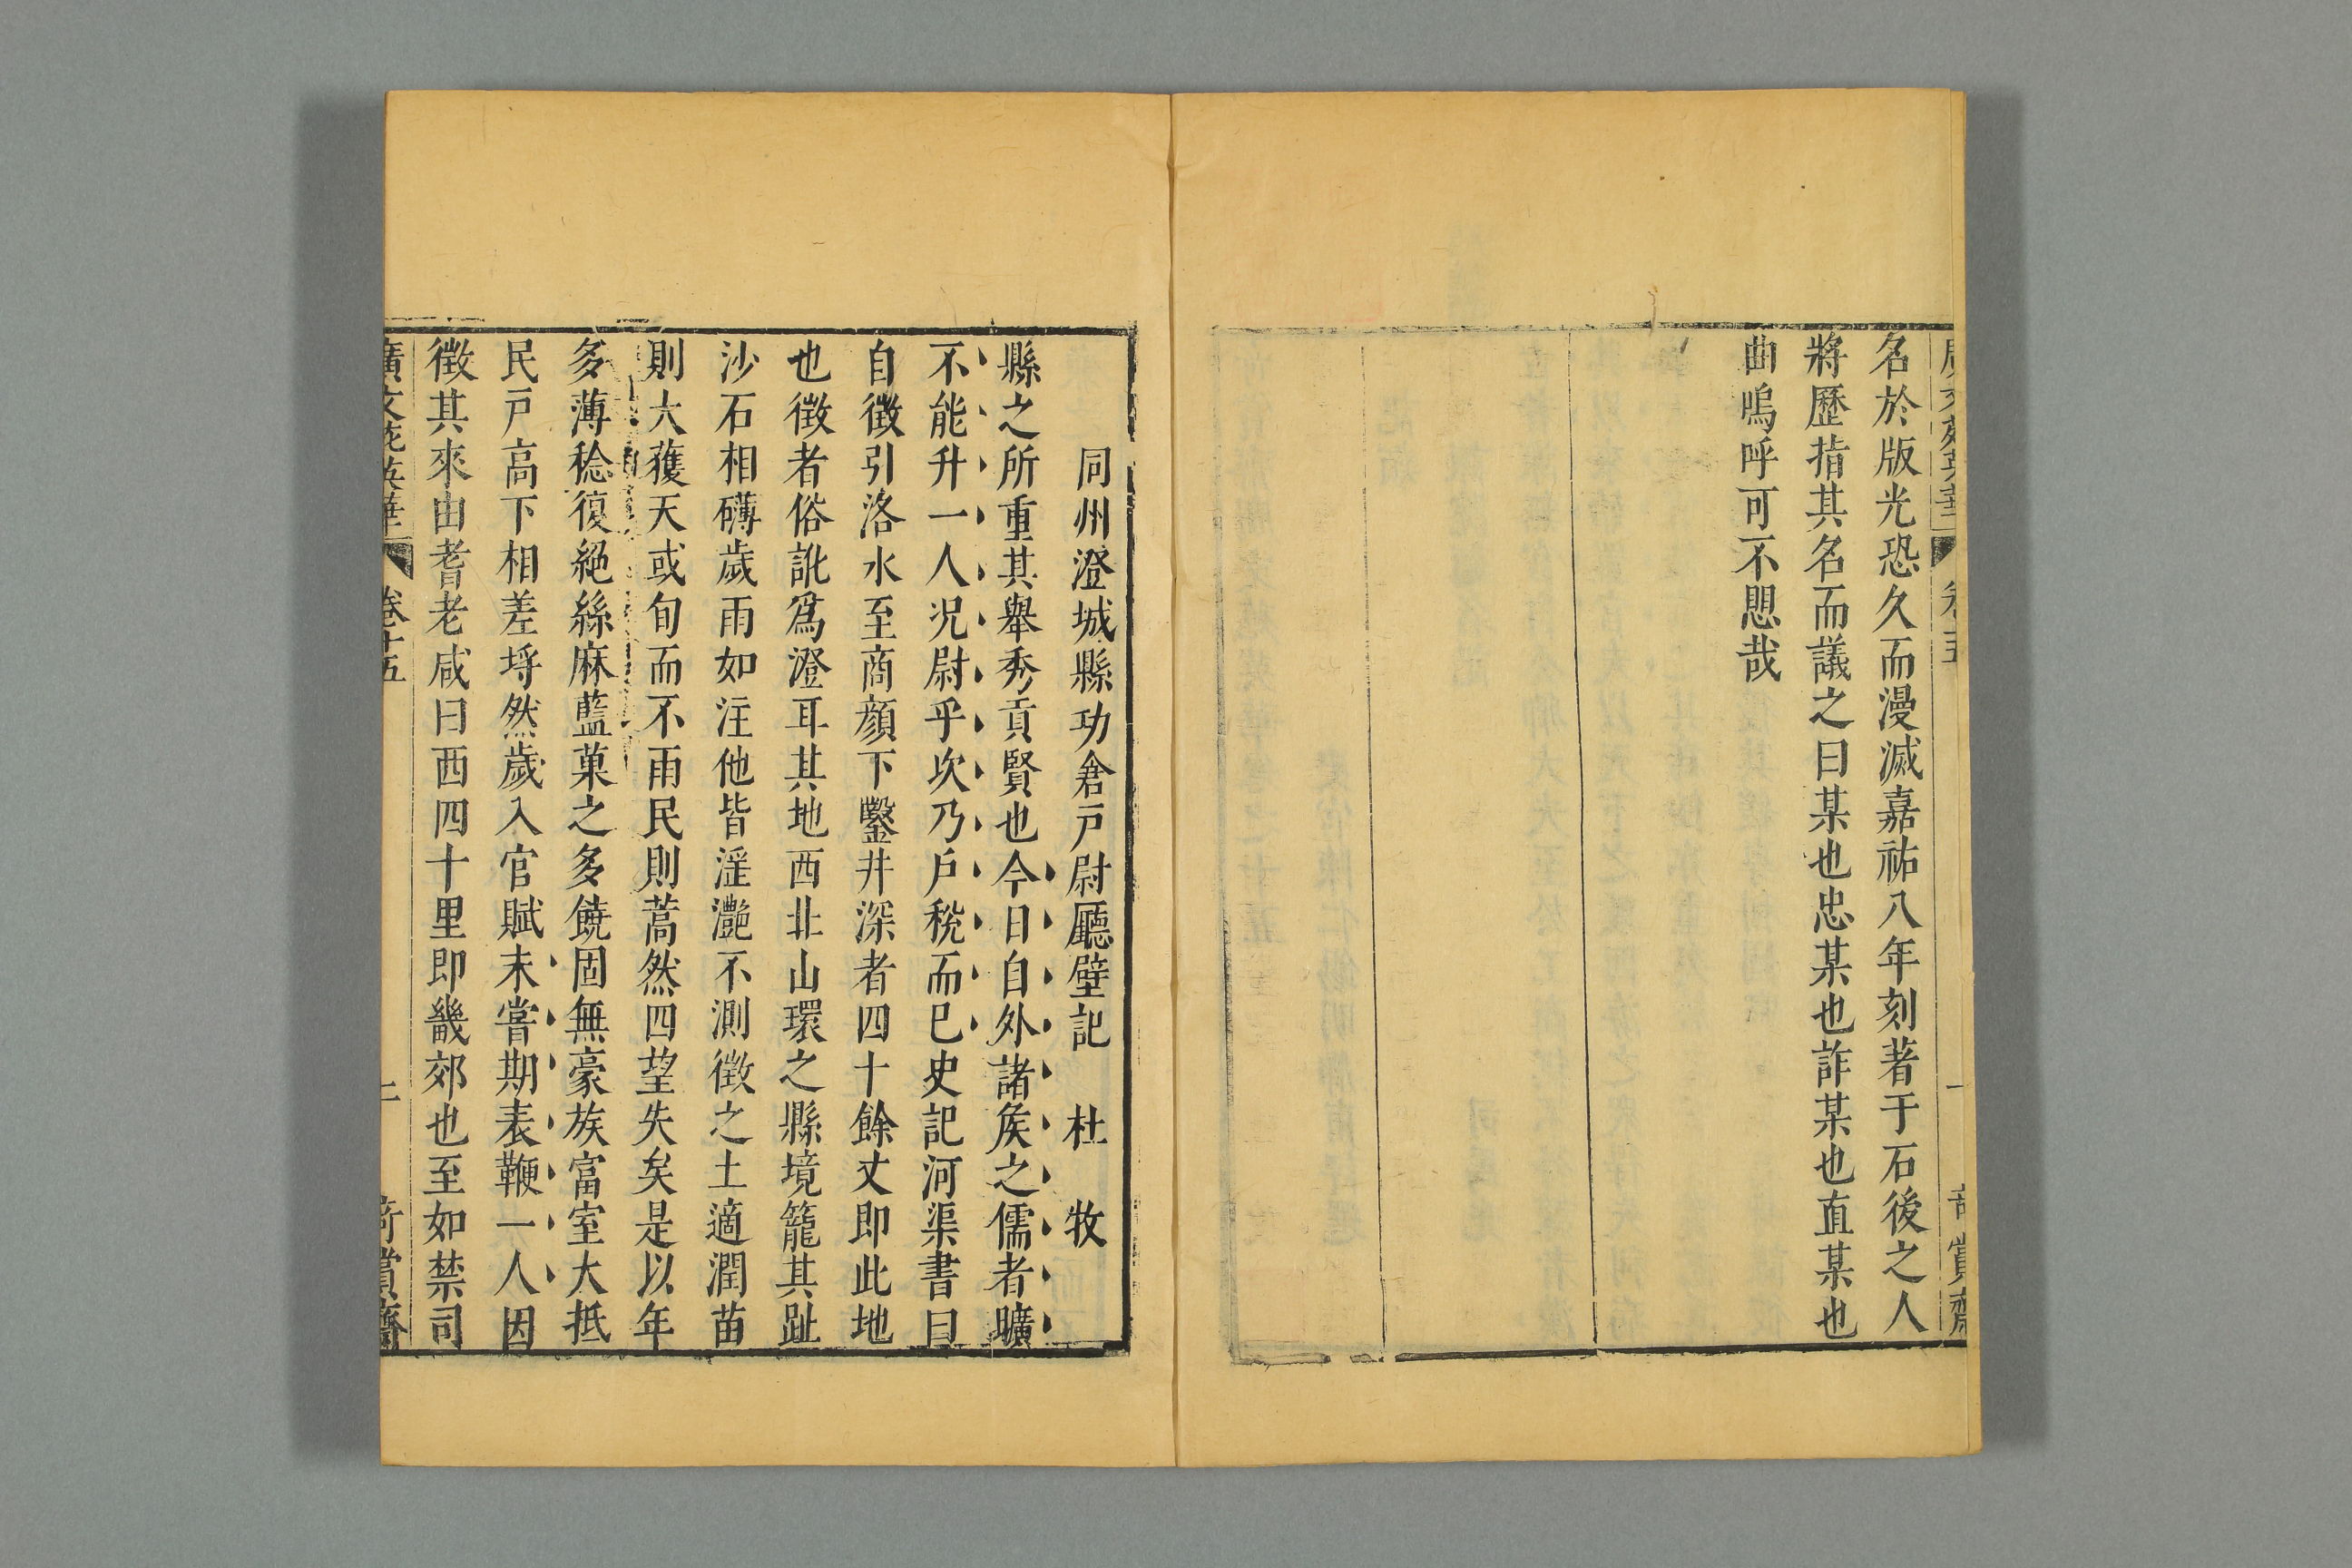 名於版光恐久而漫滅嘉祐八年刻著于石後之人
將歷指其名而議之曰某也忠某也詐某也直某也
曲嗚呼可不思哉
同州澄城縣功倉戸尉廳壁記　杜　牧
縣之所重其舉秀貢賢也今日自外諸矦之儒者曠
不能升一人况尉乎坎乃戸稅而已史記河渠書曰
自徵引洛水至商顔下鑿井深者四十餘丈即此地
也徵者俗訛爲澄耳其地西北山環之縣境籠其趾
沙石相礴歲雨如注他皆滛灔不測徵之土適潤苗
則大獲天或旬而不雨民則蒿然四望失矣是以年
多薄稔復絕絲麻藍菓之多饒固無豪族富室大抵
民戸高下相差埒然歲入官賦未嘗期表鞭一人因
徵其來由耆老咸曰西四十里即畿郊也至如禁司
廣文苑英華　卷十五　二　奇賞齋